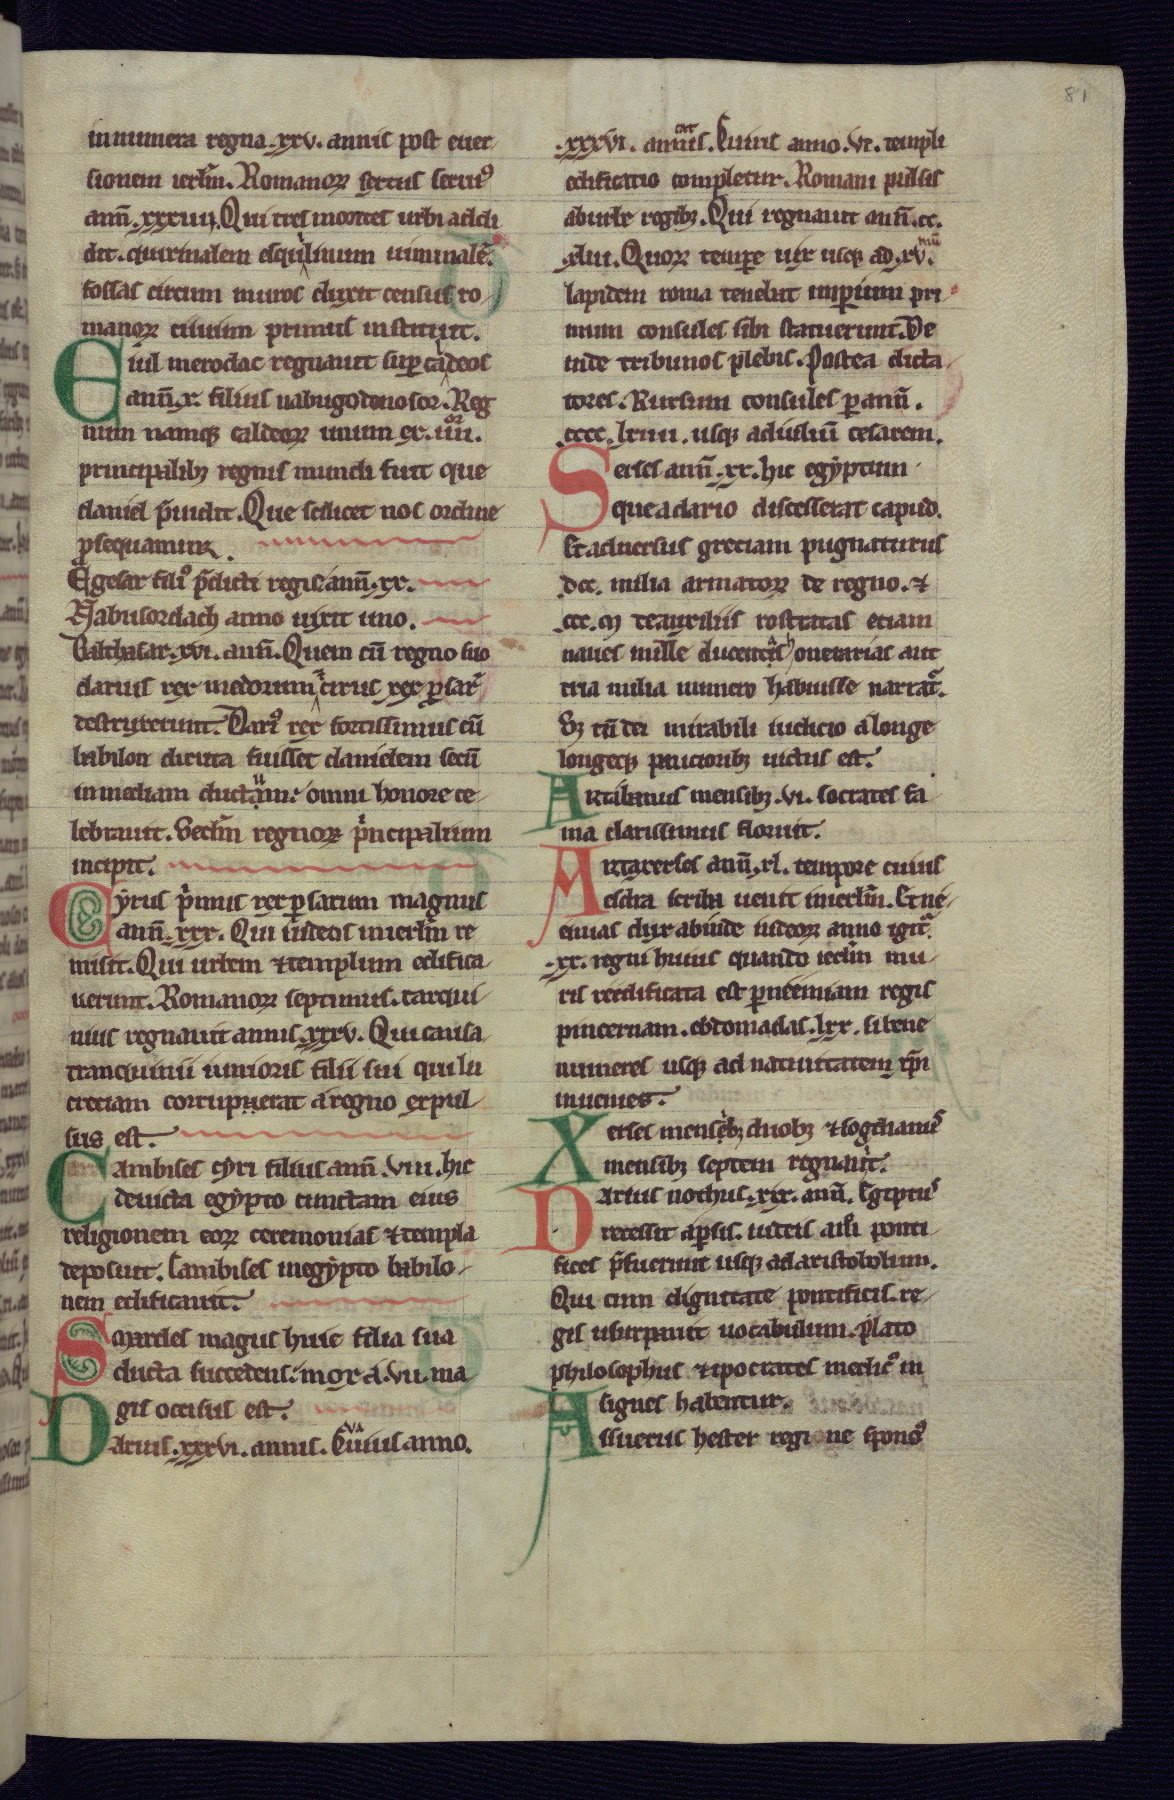 81
innumera regna .xxv. annis post euer
sionem ierlm̄. Romanoꝝ sextus seruiꝰ
ann̄. xxxiiii. Qui tres montes urbi addi
dit. quirinalem esquilinum uiminalē.
fossas circum muros duxit census ro
manoꝝ ciuium primus instituit.
Euil merodac regnauit suꝑ caldeos
ann̄. x. filius nabugodonosor. Reg
num namqꝫ caldeoꝝ unum ex .iiii.or
principalibꝫ regnis mundi fuit que
daniel p̄uidit. Que scilicet nos ordine
ꝓsequamur.
Egesar filiꝰ p̄dicti regis ann̄. xx.
Nabusordach anno uixit uno.
Balthasar .xvi. ann̄. Quem cū regno suo
darius rex medorum ⁊ cirus rex ꝑsarū
destruxerunt. Dariꝰ rex fortissimus cū
babilon diruta fuisset danielem secū
in mediam ductum omni honore ce
lebrauit. Secdm̄ regnoꝝ pͥncipalium
incipit.
Cyrus pͥmus rex ꝑsarum magnus
ann̄. xxx. Qui iudeos in ierlm̄ re
misit. Qui urbem ⁊ templum edifica
uerunt. Romanoꝝ septimus. tarqui
nius regnauit annis .xxxv. Qui causa
tranquinii iunioris filii sui qui lu
creciam corrupuerat a regno expul
sus est.
Cambises cyri filius ann̄. viii. hic
deuicta egypto cunctam eius
religionem eoꝝ ceremonias ⁊ templa
deposuit. Cambises in egypto babilo
nem edificauit.
Smerdes magus huic filia sua
ducta succedens mox a .vii. ma
gis occisus est.
Darius .xxxvi. annis. Cuius anno.
.xxxvi. annus. Cuius anno .vi. templi
edificatio completur. Romani pulsis
ab urbe regibꝫ. Qui regnauit ann̄. cc.
xliii. Quoꝝ tempre uix usqꝫ ad .xv.mū
lapidem roma tenebat imperium pri
mum consules sibi statuerunt. De
inde tribunos plebis. Postea dicta
tores. Rursum consules ꝑ ann̄.
cccc. lxiiii. usqꝫ ad iuliū cesarem.
Serses ann̄. xx. hic egyptum
que a dario discesserat capud.
Et aduersus greciam pugnaturus
dcc. milia armatoꝝ de regno. ⁊
ccc. m̄ de auxiliis rostratas etiam
naues mille ducentas onerarias aut
tria milia numero habuisse narratᷓ.
Sꝫ tn̄ dei mirabili iudicio a longe
longeqꝫ paucioribꝫ uictus est.
Artabanus mensibꝫ .vi. socrates fa
ma clarissimus floruit.
Artaxerses ann̄. xl. tempore cuius
esdra scriba uenit in ierlm̄. Et ne
emias dux abinde iudeoꝝ anno igitᷓ
.xx. regni huius quando ierlm̄ mu
ris reedificata est ꝑ neemiam regis
pincernam. ebdomadas .lxx. si bene
numeres usqꝫ ad natiuitatem xp̄i
inuenies.
Xerses mensibꝫ duobꝫ ⁊ sogdianus
mensibꝫ septem regnauit.
Darius nothus .xix. ann̄. Egiptus
recessit a ꝑsis. iudeis aut̄ ponti
fices p̄fuerunt usqꝫ ad aristobolum.
Qui cum dignitate pontificis. re
gis usurpauit uocabulum. plato
philosophus ⁊ ipocrates medicꝰ in
signes habentur.
Assuerus hester regi ne sponsꝰ